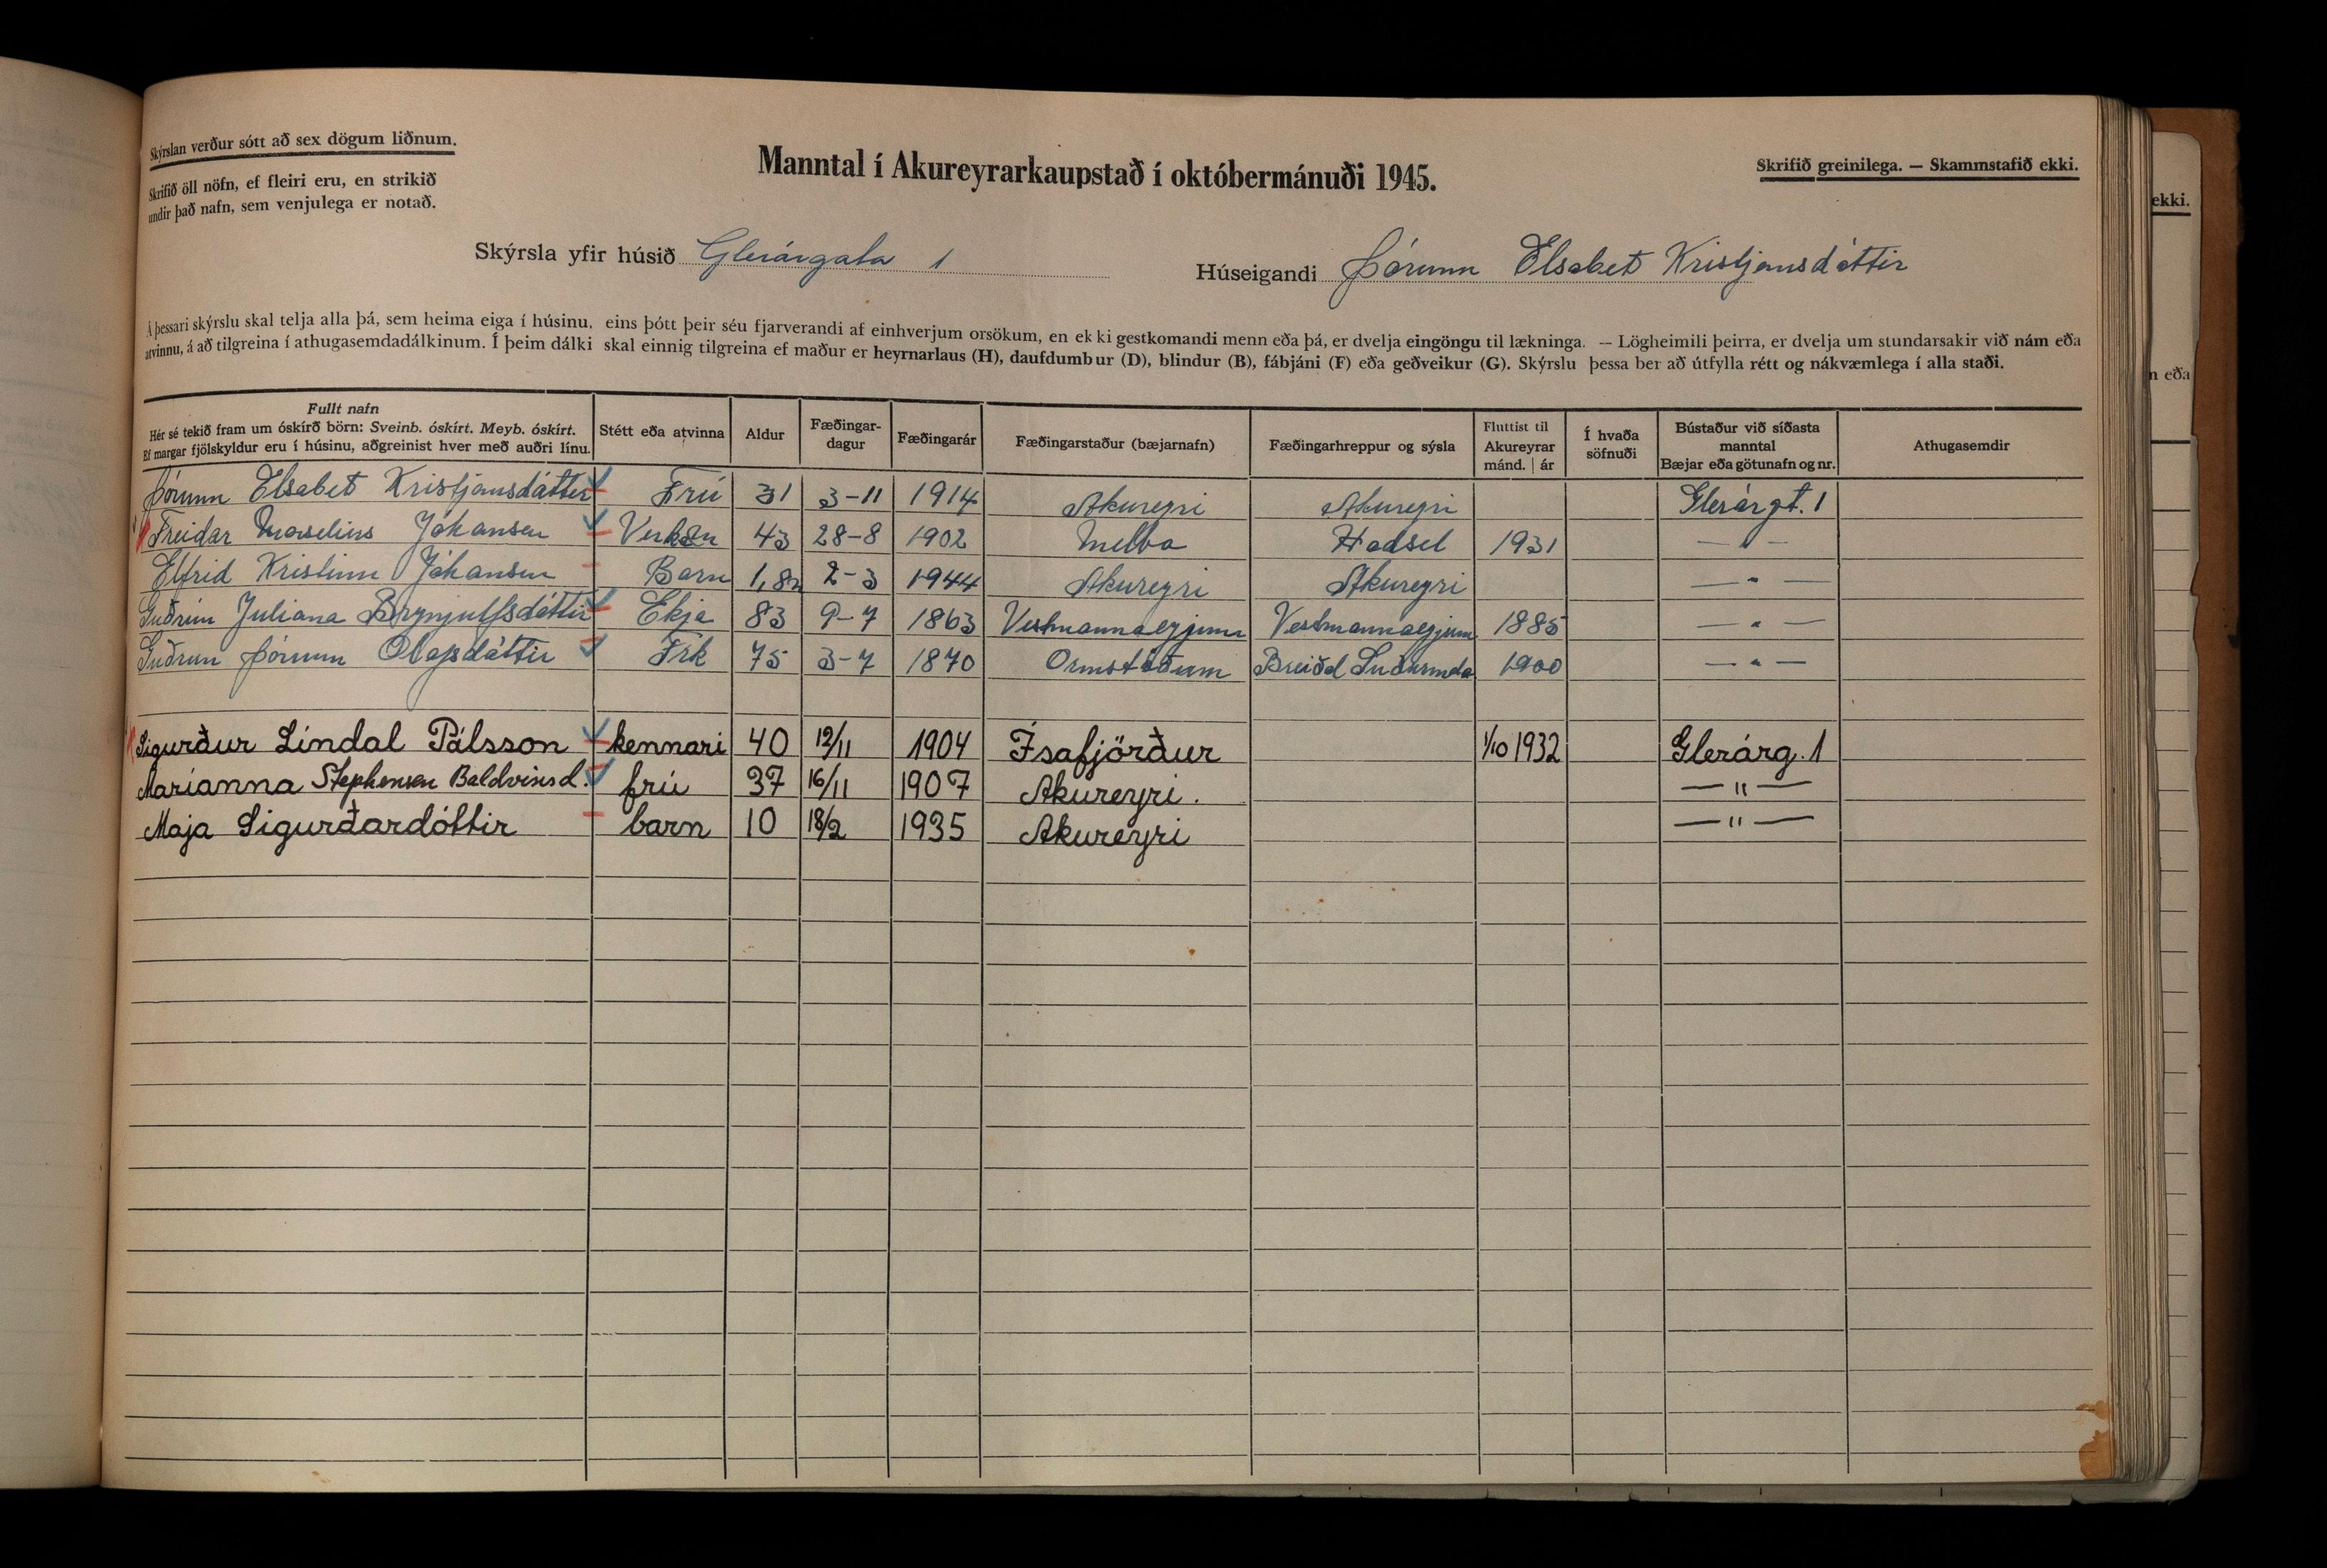 Skýrslan verður sótt að sex dögum liðnum.
Skrifið öll nöfn, ef fleiri eru, en strikið
undir það nafn, sem venjulega er notað.
Manntal í Akureyrarkaupstað í októbermánuði 1945.
Skrifið greinilega. — Skammstafið ekki.
ekki.
Skýrsla yfir húsið Glerárgata 1
Húseigandi Þórunn Elsabet Kristjansdóttir
Á þessari skýrslu skal telja alla þá, sem heima eiga í húsinu, eins þótt þeir séu fjarverandi af einhverjum orsökum, en ekki gestkomandi menn eða þá, er dvelja eingöngu til lækninga. — Lögheimili þeirra, er dvelja um stundarsakir við nám eða
atvinnu, á að tilgreina í athugasemdadálkinum. Í þeim dálki skal einnig tilgreina ef maður er heyrnarlaus (H), daufdumbur (D), blindur (B), fábjáni (F) eða geðveikur (G). Skýrslu þessa ber að útfylla rétt og nákvæmlega í alla staði.
n eða
Fullt nafn
Hér sé tekið fram um óskírð börn: Sveinb. óskírt. Meyb. óskírt.
Ef margar fjölskyldur eru í húsinu, aðgreinist hver með auðri línu.
Stétt eða atvinna
Aldur
Fæðingar-
dagur
Fæðingarár
Fæðingarstaður (bæjarnafn)
Fæðingarhreppur og sýsla
Fluttist til
Akureyrar
mánd. | ár
Í hvaða
söfnuði
Bústaður við síðasta
manntal
Bæjar eða götunafn og nr.
Athugasemdir
Þórunn Elsabet Kristjansdóttir Frú 31 3-11 1914 Akureyri Akureyri Glerárgt. 1
Freidar Johansen 43 28-8 1902 Melbo Hadsel 1931 — " —
Elfrid Kristinn Jóhansen Barn 1, 2-3 1944 Akureyri Akureyri — " —
Guðrún Juliana Brynjulfsdóttir Ekja 83 9-7 1863 Vestmannaeyjum Vestmannaeyjum 1885 — " —
Guðrun Þórunn Olafsdóttir Frk 75 3-7 1870 Ormstöðum Breiðd Suðurmúla 1900 — " —
Sigurður Líndal Pálsson kennari 40 12/11 1904 Ísafjörður 1/10 1932 Glerárg. 1
Maríanna Stephensen Baldvinsd. frú 37 16/11 1907 Akureyri. — " —
Maja Sigurðardóttir barn 10 18/2 1935 Akureyri — " —